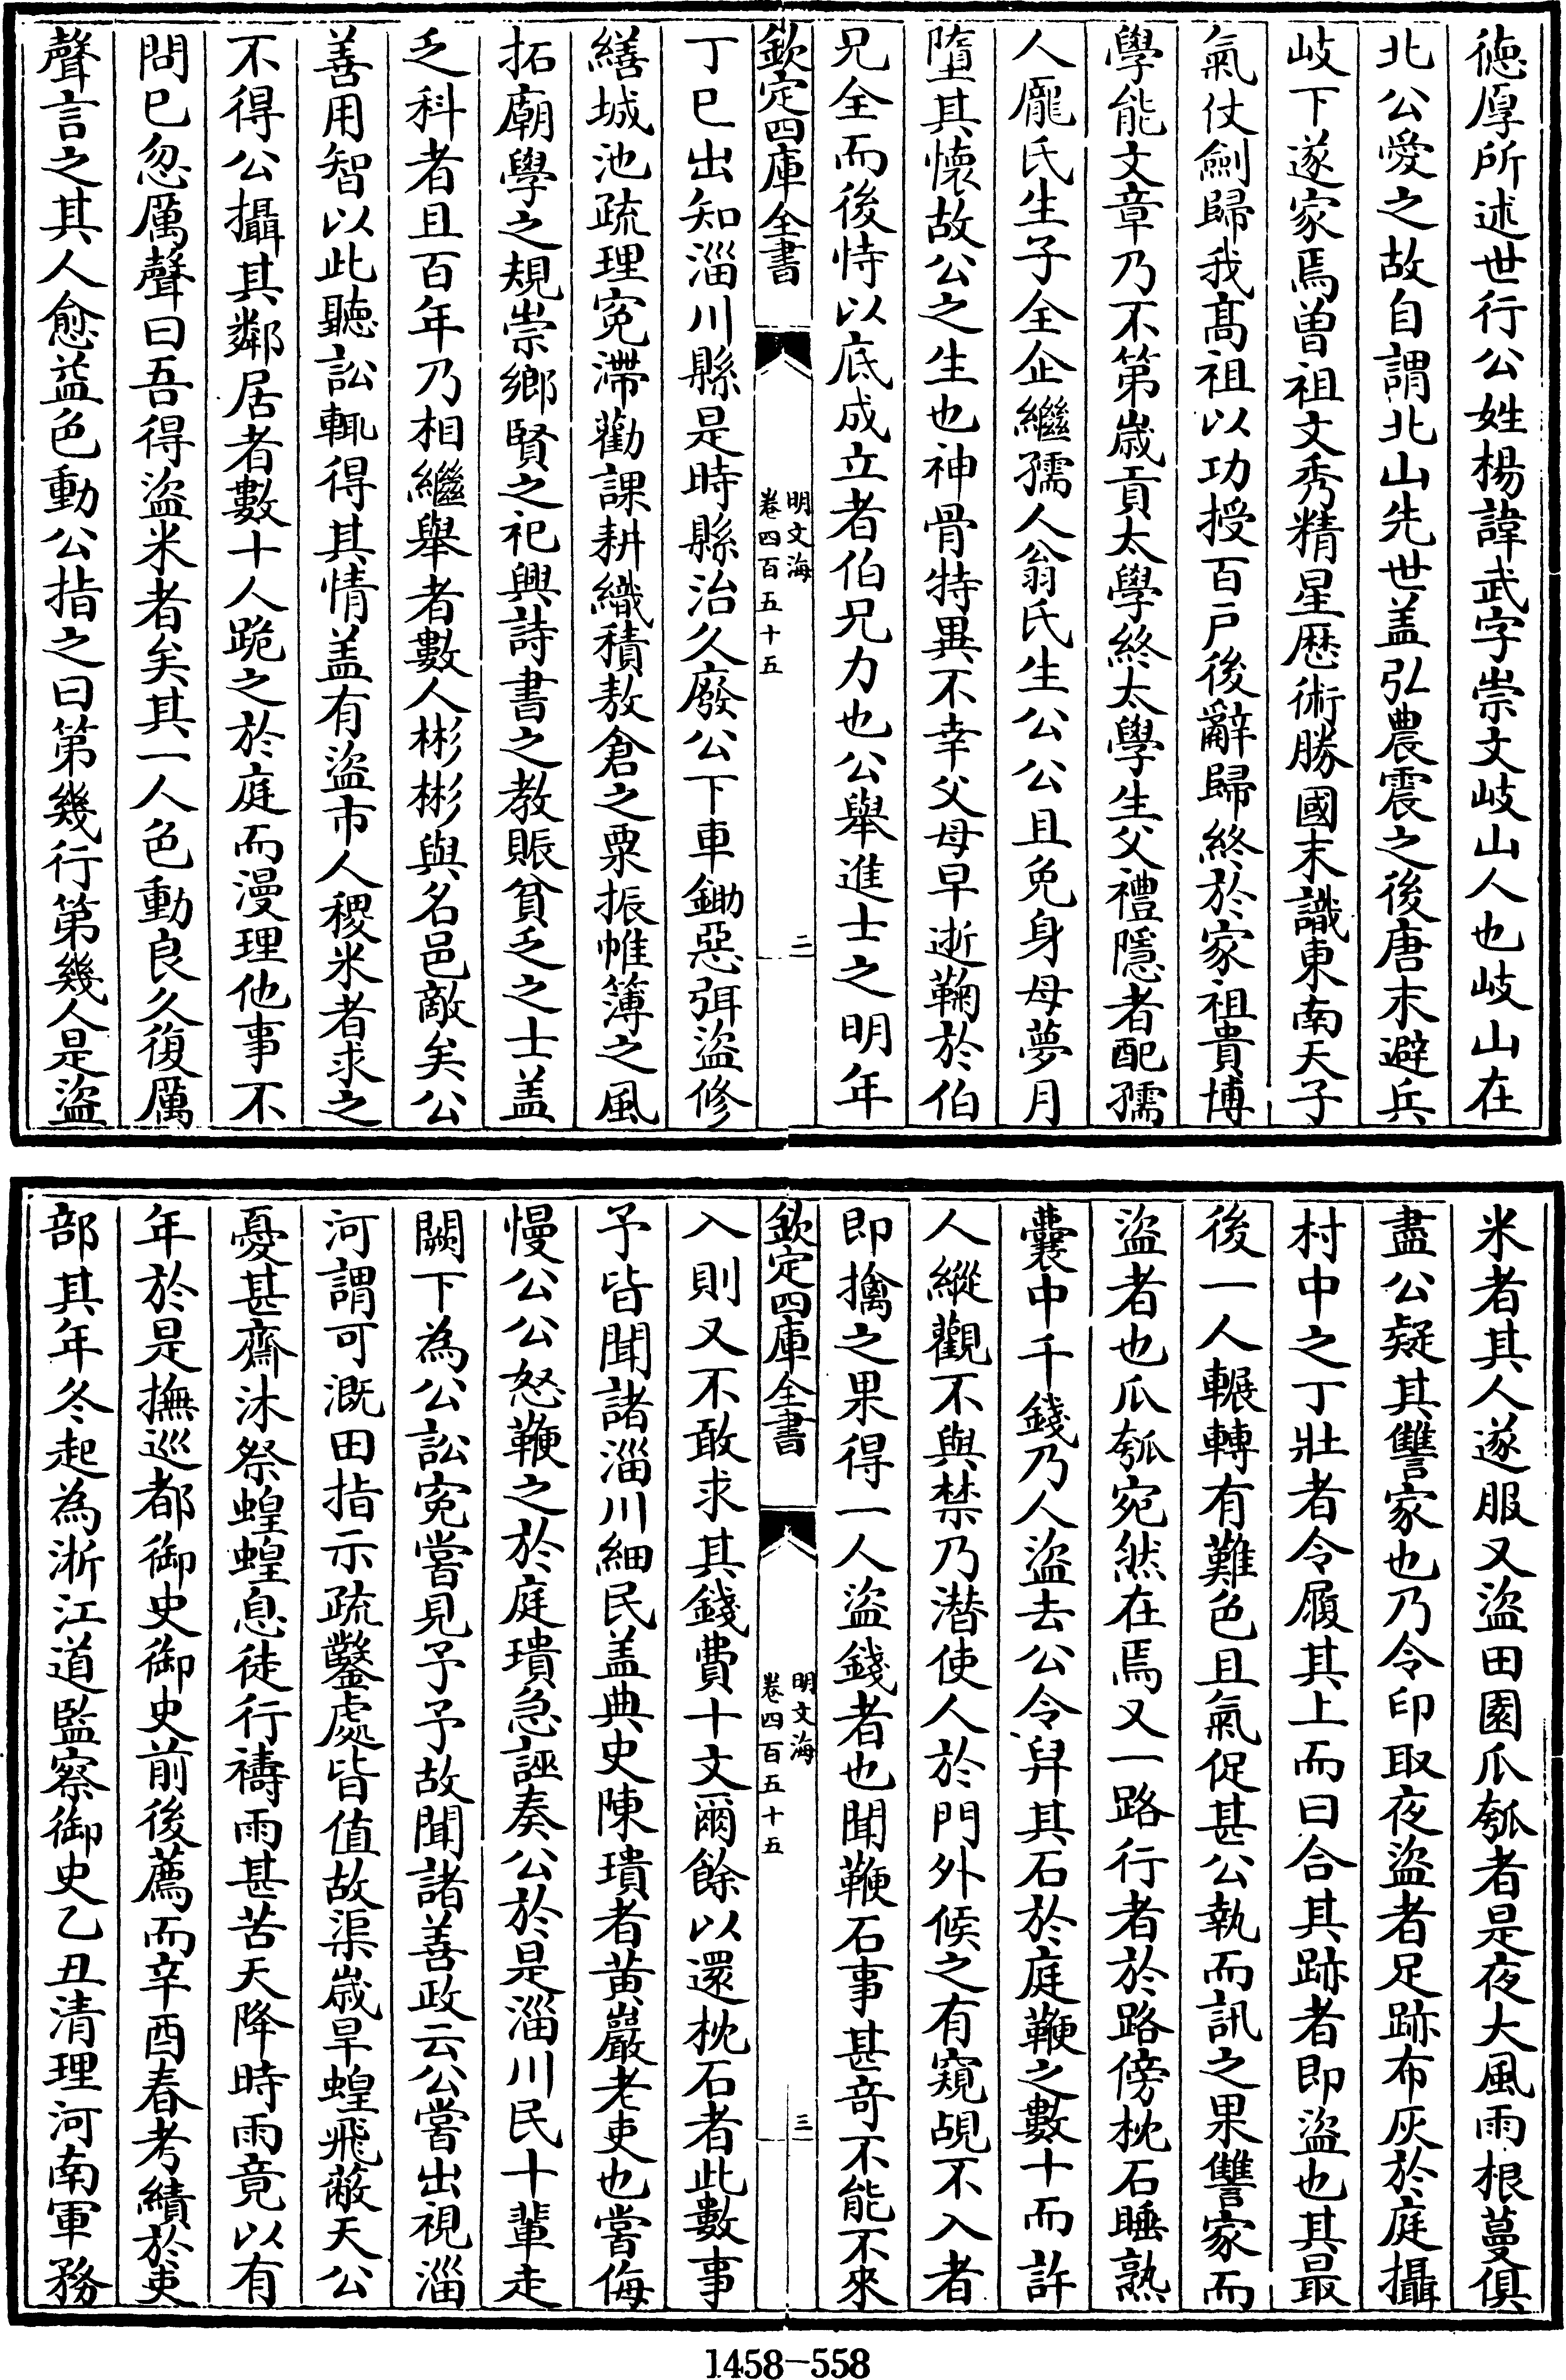 德厚所述世行公姓楊諱武字崇文岐山人也岐山在
北公愛之故自謂北山先世盖弘農震之後唐末避兵
岐下遂家焉曽祖文秀精星歴術勝國末識東南天子
氣仗劍歸我髙祖以功授百戶後辭歸終於家祖貴博
學能文章乃不第歲貢太學終太學生父禮隱者配孺
人龎氏生子全企繼孺人翁氏生公公且免身母夢月
墮其懷故公之生也神骨特異不幸父母早逝鞠於伯
兄全而後恃以底成立者伯兄力也公舉進士之明年
欽定四庫全書
明文海
卷四百五十五
二
丁巳出知淄川縣是時縣治久廢公下車鋤惡弭盜修
繕城池疏理寃滯勸課耕織積敖倉之粟振帷簿之風
拓廟學之規崇鄉賢之祀興詩書之教賑貧乏之士盖
乏科者且百年乃相繼舉者數人彬彬與名邑敵矣公
善用智以此聽訟輒得其情盖有盜市人稷米者求之
不得公攝其鄰居者數十人跪之於庭而漫理他事不
問已忽厲聲曰吾得盜米者矣其一人色動良久復厲
聲言之其人愈益色動公指之曰第幾行第幾人是盜
米者其人遂服又盜田園瓜瓠者是夜大風雨根蔓俱
盡公疑其讐家也乃令印取夜盜者足跡布灰於庭攝
村中之丁壯者令履其上而曰合其跡者即盜也其最
後一人輾轉有難色且氣促甚公執而訊之果讐家而
盜者也瓜瓠宛然在焉又一路行者於路傍枕石睡熟
囊中千錢乃人盜去公令舁其石於庭鞭之數十而許
人縱觀不與禁乃潜使人於門外候之有窺覘不入者
即擒之果得一人盜錢者也聞鞭石事甚竒不能不來
欽定四庫全書
明文海
卷四百五十五
三
入則又不敢求其錢費十文爾餘以還枕石者此數事
予皆聞諸淄川細民盖典史陳瓆者黄巖老吏也嘗侮
慢公公怒鞭之於庭瓆急誣奏公於是淄川民十輩走
闕下為公訟寃嘗見予予故聞諸善政云公嘗出視淄
河謂可溉田指示疏鑿處皆值故渠歲旱蝗飛蔽天公
憂甚齋沐祭蝗蝗息徒行禱雨甚苦天降時雨竟以有
年於是撫巡都御史御史前後薦而辛酉春考績於吏
部其年冬起為浙江道監察御史乙丑清理河南軍務
1458-558